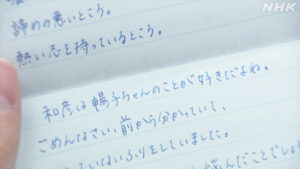 NHK
諦めの悪いところ。
熱い志を持っているところ。
和彦は暢子ちゃんのことが好きだよね。
ごめんなさい、前から分かっていて、
いないふりをしていました。